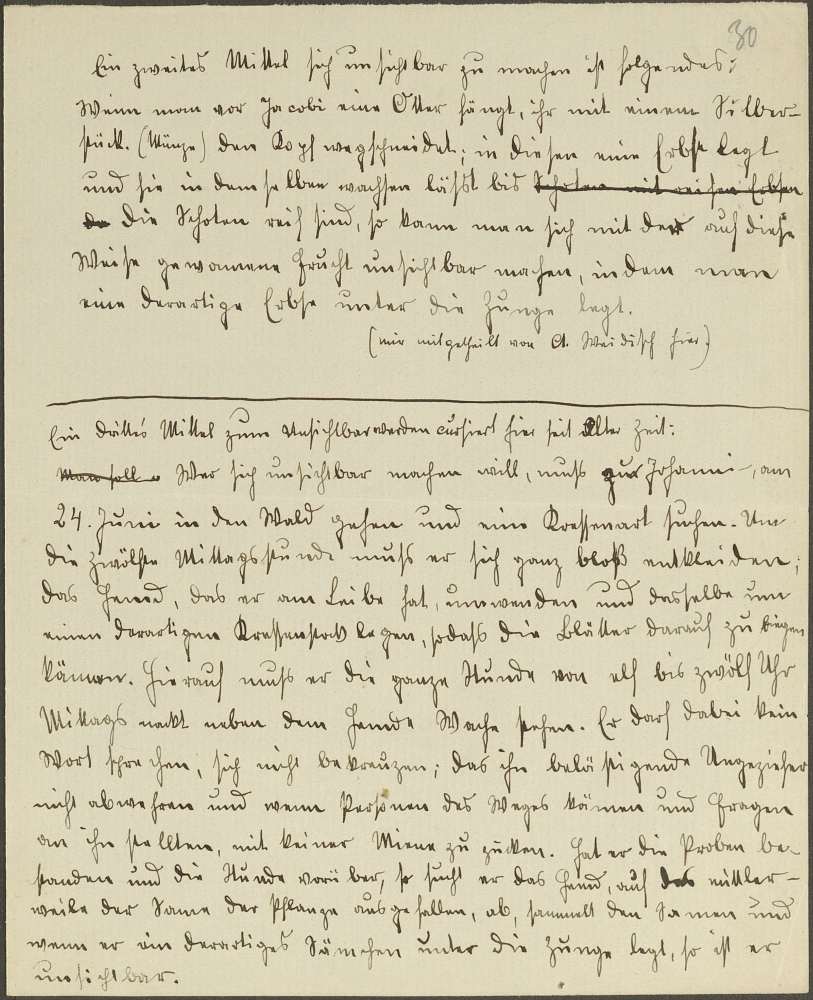 30
Ein zweites Mittel sich unsichtbar zu machen ist folgendes:
Wenn man vor Jacobi eine Otter fängt, ihr mit einem Silber-
stück (Münze) den Kopf wegschneidet; in diesen eine Erbse legt
und sie in demselben wachsen lässt bis Schoten mit reifen Erbsen
da die Schoten reif sind, so kann man sich mit der auf diese
Weise gewonnene Frucht unsichtbar machen, indem man
eine derartige Erbse unter die Zunge legt.
(mir mitgetheilt von A. Weidisch hier)
Ein drittes Mittel zum Unsichtbarwerden cursiert hier seit alter Zeit:
Man soll Wer sich unsichtbar machen will, muss zur Johanni-, am
24. Juni in den Wald gehen und eine Kressenart suchen. Um
die zwölfte Mittagsstunde muss er sich ganz bloß entkleiden;
das Hemd, das er am Leibe hat, umwenden und dasselbe um
einen derartigen Kressenstock legen, sodass die Blätter darauf zu biegen
kämen. Hierauf muss er die ganze Stunde von elf bis zwölf Uhr
Mittags nackt neben dem Hemde Wache stehen. Er darf dabei kein
Wort sprechen, sich nicht bekreuzen; das ihn belästigende Ungeziefer
nicht abwehren und wenn Personen des Weges kämen und Fragen
an ihn stellten, mit keiner Miene zu zucken. Hat er die Proben be-
standen und die Stunde vorüber, so sucht er das Hemd, auf das mittler-
weile der Same der Pflanze ausgefallen, ab, sammelt den Samen und
wenn er ein derartiges Sämchen unter die Zunge legt, so ist er
unsichtbar.